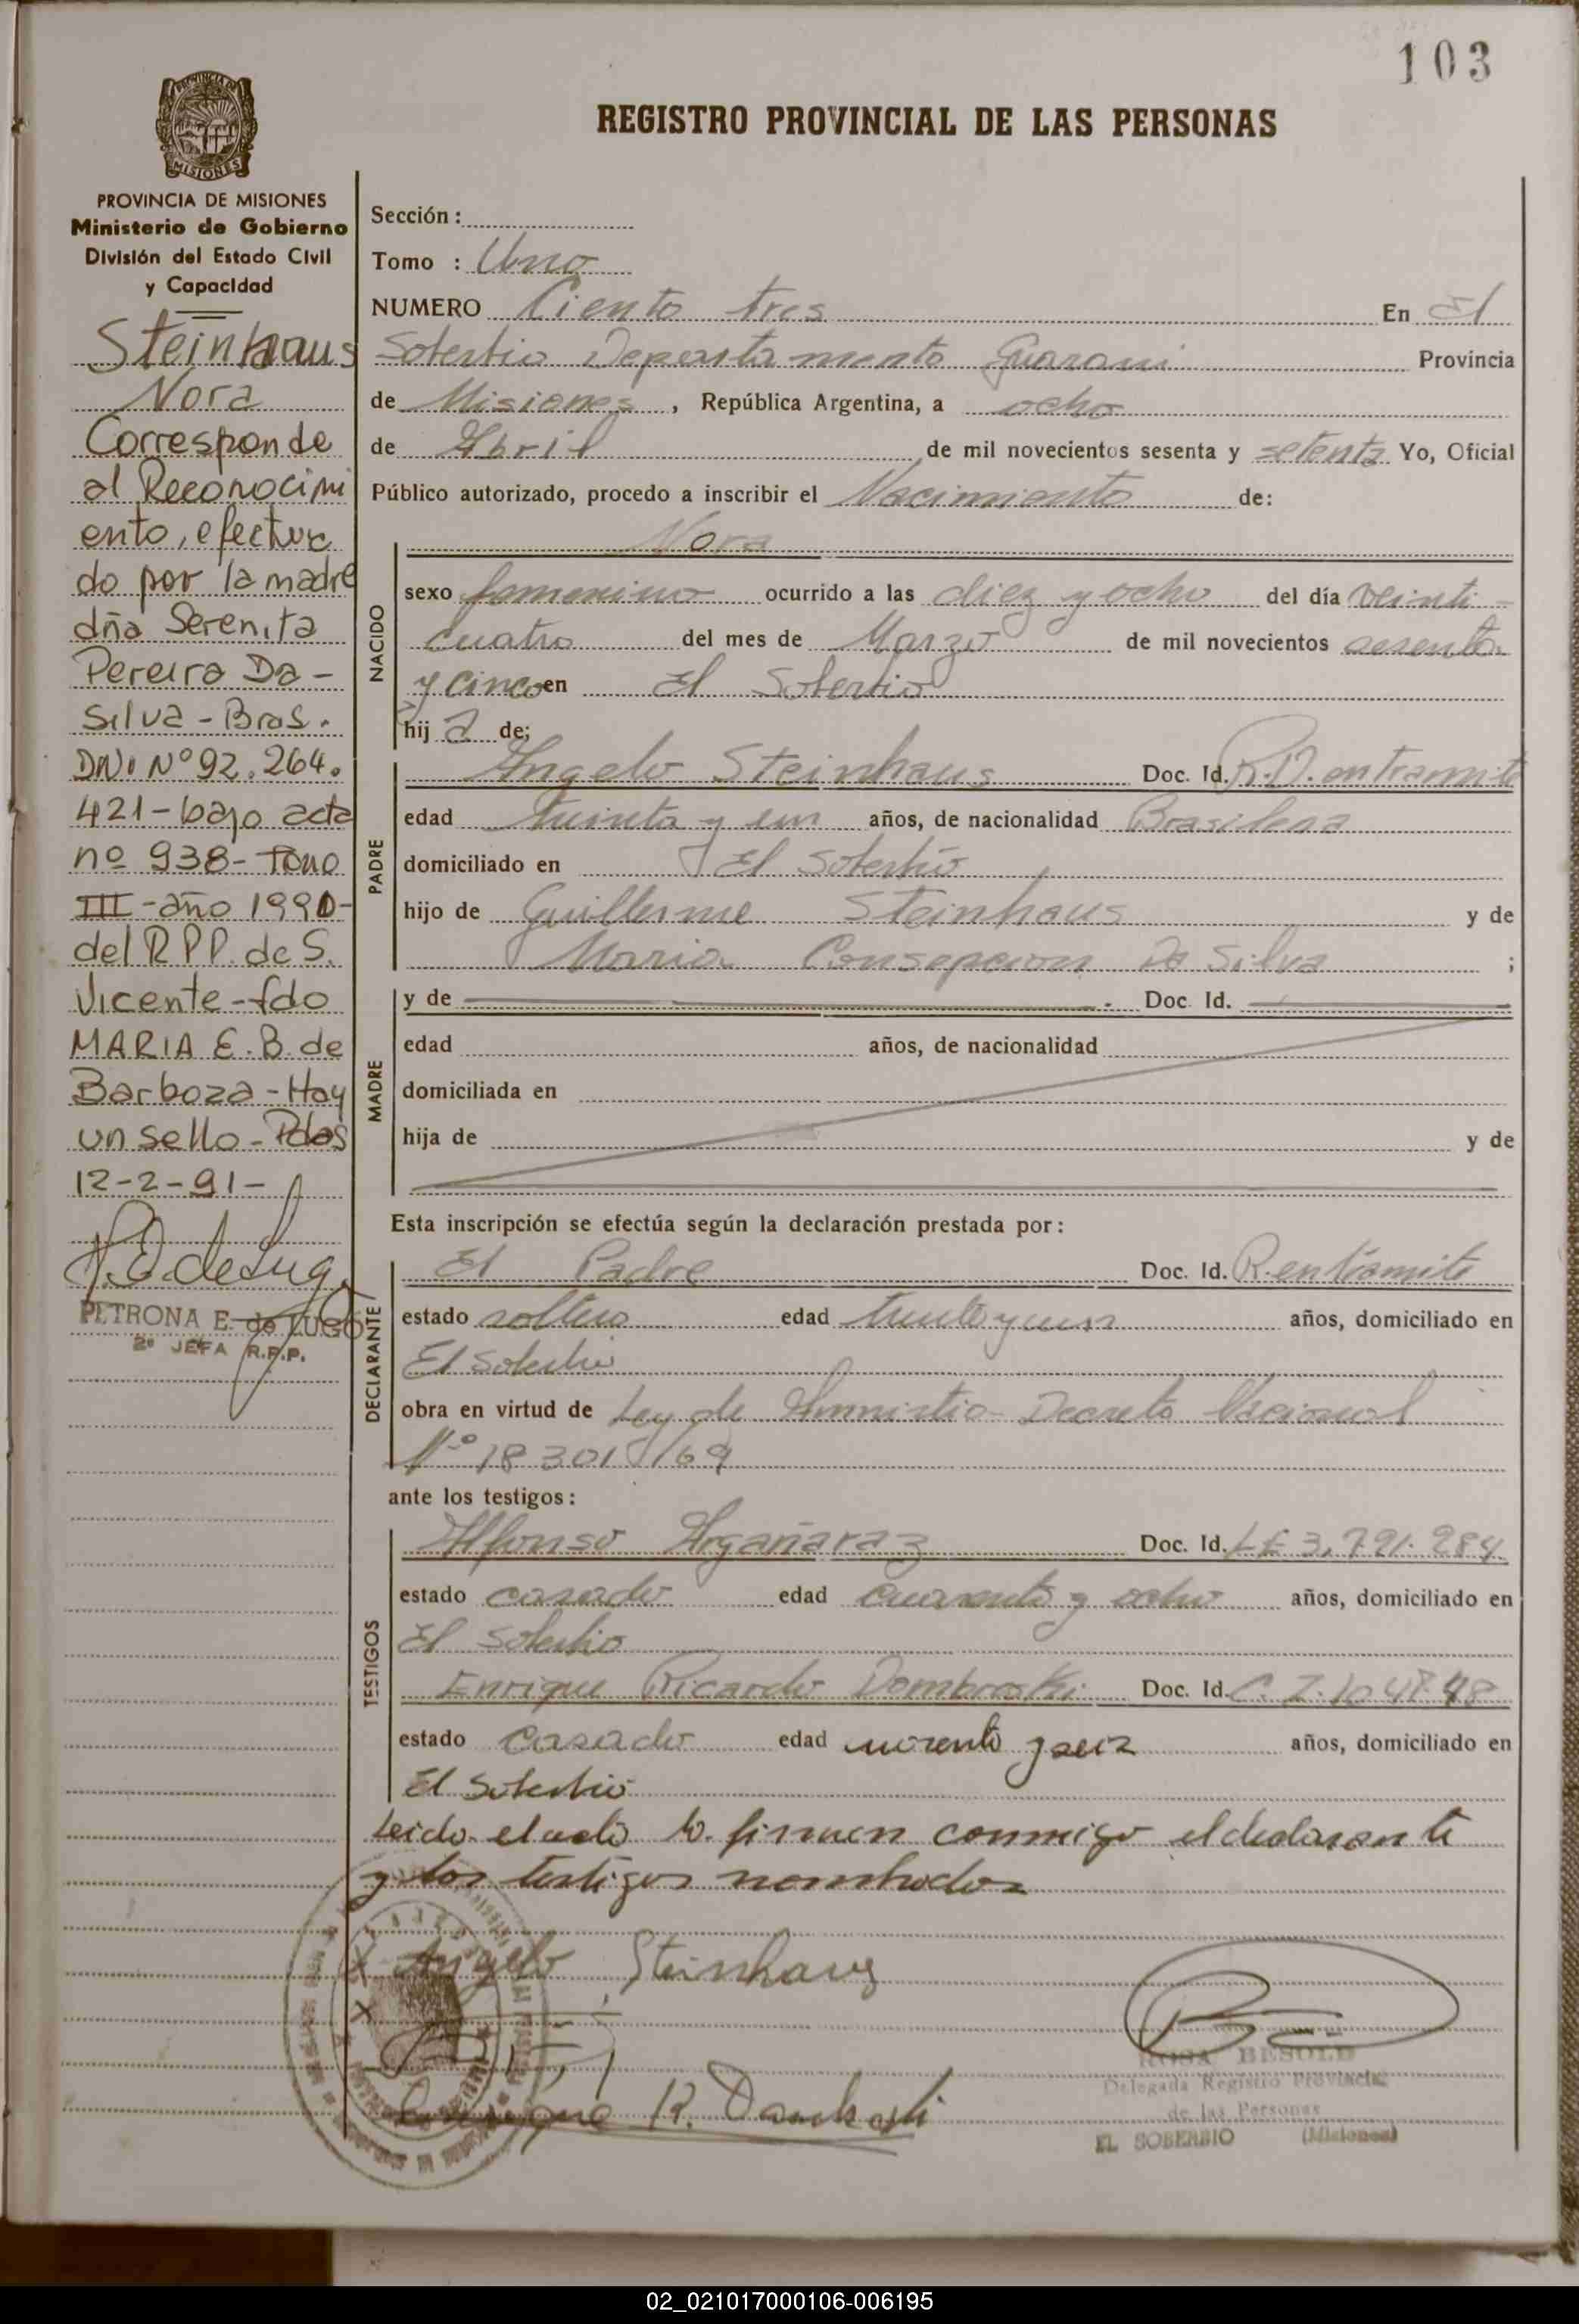 103
REGISTRO PROVINCIAL DE LAS PERSONAS
PROVINCIA DE
MISIONES
PROVINCIA DE MISIONES
Ministerio de Gobierno
División del Estado Civil
y Capacidad
Steinhaus
Nora
Corresponde
al Reconocimi
ento, efectua
do por la madre
dña Serenita
Pereira Da -
Silva - Bras.
DNI Nº 92.264.
421 - bajo acta
nº 938 - Tomo
III - año 1990 -
del R P P. de S.
Vicente - fdo
MARIA E. B. de
Barboza - Hay
un sello - Pdas
12-2-91-
PETRONA E. de LUGO
2º JEFA R.P.P.
Sección :
Tomo : Uno
NUMERO Ciento tres En El
Soberbio Departamento Guarani Provincia
de Misiones , República Argentina, a ocho
de Abril de mil novecientos sesenta y setenta Yo, Oficial
Público autorizado, procedo a inscribir el Nacimiento de:
NACIDO
Nora
sexo femenino ocurrido a las diez y ocho del día veinti-
cuatro del mes de Marzo de mil novecientos sesenta
y cinco en El Soberbio
hij a de;
PADRE
Angelo Steinhaus Doc. Id. R.D. en tramite
edad treinta y un años, de nacionalidad Brasilena
domiciliado en El Soberbio
hijo de Guillerme Steinhaus y de
Maria Consepcion Da Silva ;
MADRE
y de Doc. Id.
edad años, de nacionalidad
domiciliada en
hija de y de
Esta inscripción se efectúa según la declaración prestada por :
DECLARANTE
El Padre Doc. Id. R. en tramite
estado soltero edad treinta y un años, domiciliado en
El Soberbio
obra en virtud de Ley de Amnistia - Decreto Nacional
Nº 18301/69
ante los testigos :
TESTIGOS
Alfonso Argañaraz Doc. Id. LE 3.721.284
estado casado edad cuarenta y ocho años, domiciliado en
El Soberbio
Enrique Ricardo Dombroski Doc. Id. C. I. 104748
estado casado edad y seis años, domiciliado en
El Soberbio
Leido el acta lo firman conmigo el declarante
y los testigos nombrados
X Angelo Steinhaus
X
Enrique R. Dombroski
ROSA BESOLD
Delegada Registro Provincial
de las Personas
EL SOBERBIO (Misiones)
02_021017000106-006195